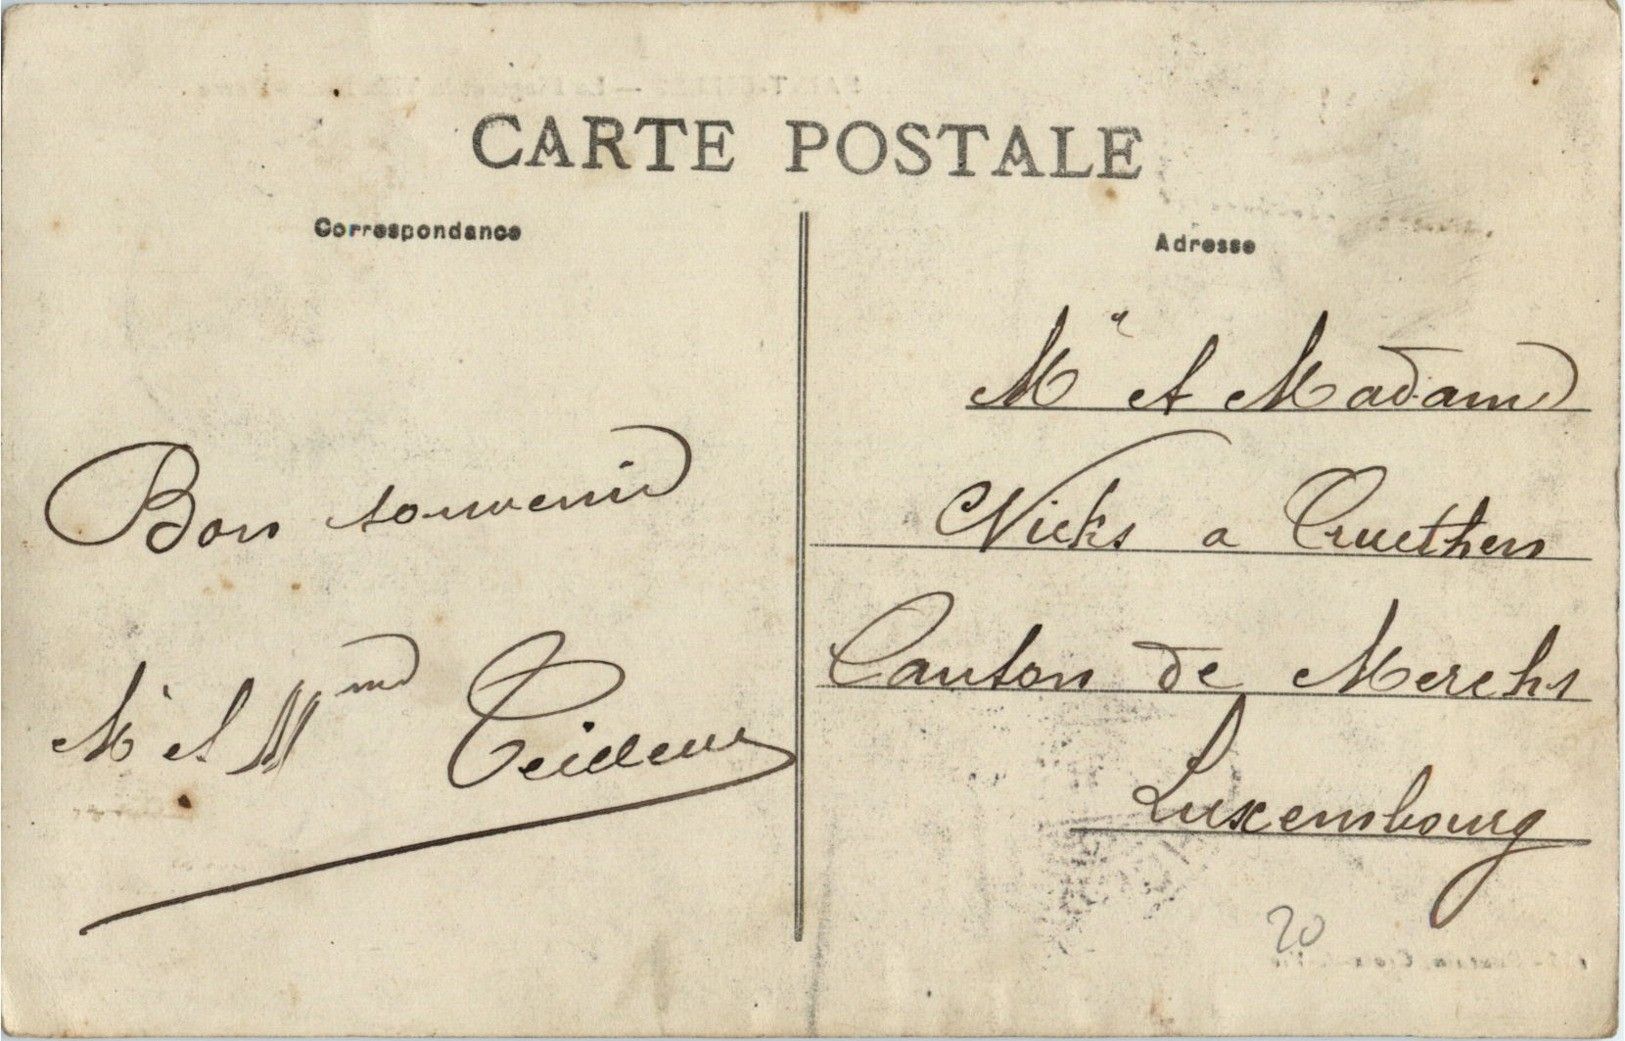 CARTE POSTALE
Correspondance
Bon souvenir
Mr et Mme Teilleux
Adresse
Mr et Madame
Nicks a Cruchten
Canton de Merchs
Luxembourg
20